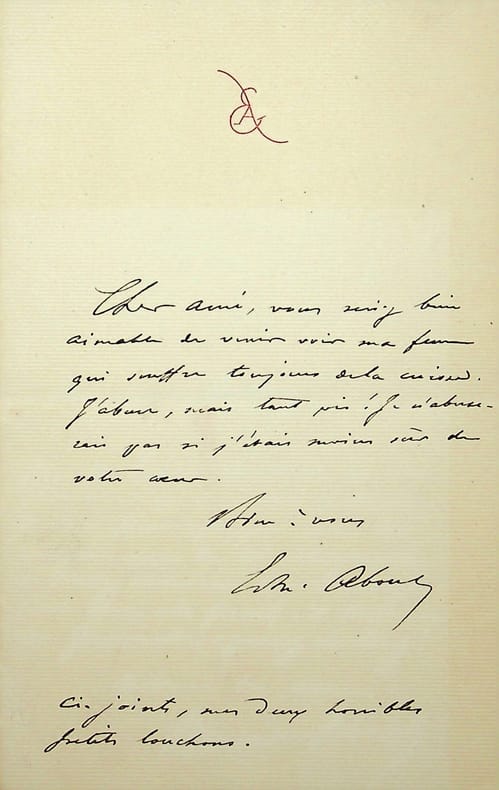 EA
Cher ami, vous seriez bien
aimable de venir voir ma femme
qui souffre toujours de la cuisse.
J'abuse, mais tant pis! Je n'abuse-
rais pas si j'étais moins sûr de
votre cœur.
Bien à vous
Edm. About
Ci-joints, mes deux horribles
petits louchons.